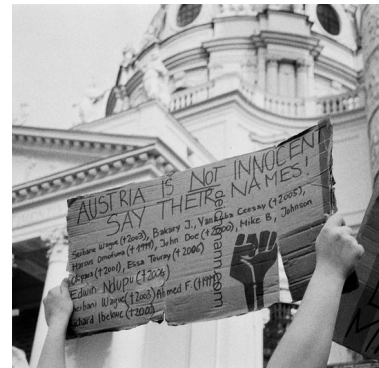 AUSTRIA IS NOT INNOCENT
SAY THEIR NAMES!
Seibane Wague (†2003), Bakary J., Yankuba Ceesay (†2005),
Marcus Omofuma (†1999), John Doe (†2000), Mike B, Johnson
Okpara (†2001), Essa Touray (†2006)
Edwin Ndupu (†2006)
Cheibani Wague (†2003) Ahmed F. (†1999
Richard Ibekwe (†200